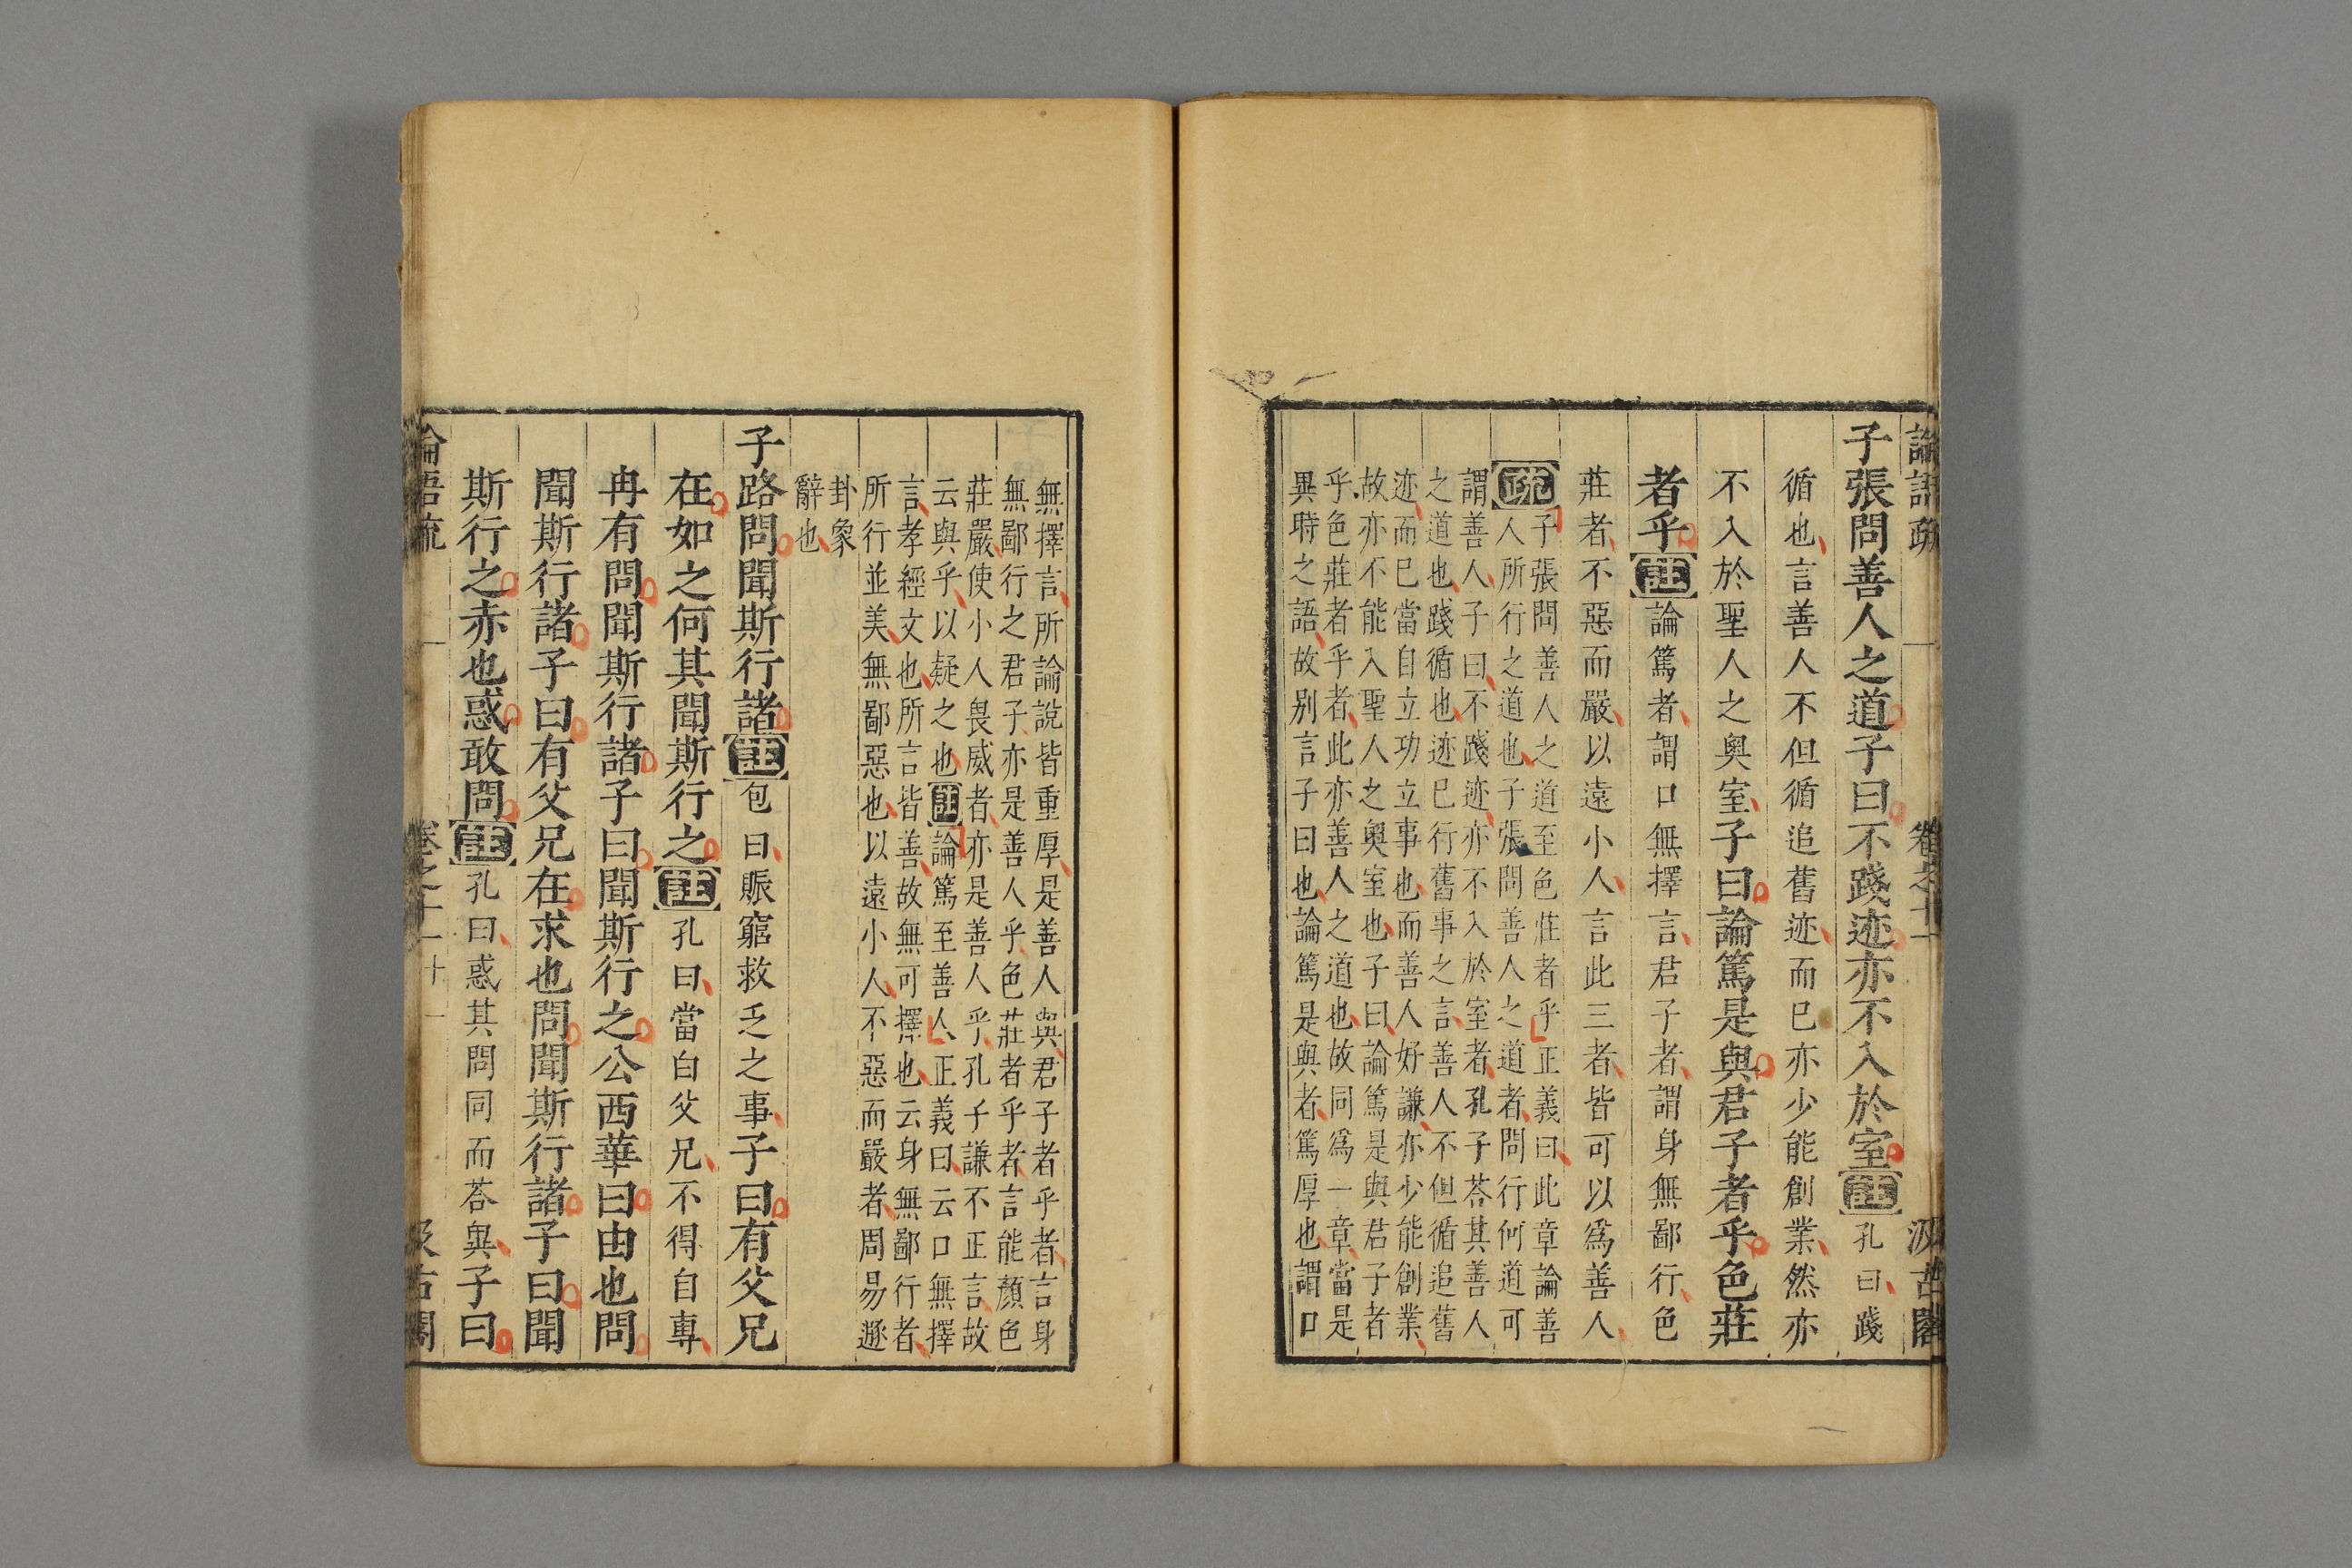 論語疏 卷之十一 汲古閣
子張問善人之道子曰不踐迹亦不入於室註孔曰踐
循也言善人不但循追舊迹而已亦少能創業然亦
不入於聖人之奧室子曰論篤是與君子者乎色莊
者乎註論篤者謂口無擇言君子者謂身無鄙行色
莊者不惡而嚴以遠小人言此三者皆可以爲善人
疏子張問善人之道至色莊者乎正義曰此章論善
人所行之道也子張問善人之道者問行何道可
謂善人子曰不踐迹亦不入於室者孔子荅其善人
之道也踐循也迹已行舊事之言善人不但循追舊
迹而已當自立功立事也而善人好謙亦少能創業
故亦不能入聖人之奧室也子曰論篤是與君子者
乎色莊者乎者此亦善人之道也故同爲一章當是
異時之語故別言子曰也論篤是與者篤厚也謂口
無擇言所論說皆重厚是善人與君子者乎者言身
無鄙行之君子亦是善人乎色莊者乎者言能顏色
莊嚴使小人畏威者亦是善人乎孔子謙不正言故
云與乎以疑之也註論篤至善人正義曰云口無擇
言孝經文也所言皆善故無可擇也云身無鄙行者
所行並美無鄙惡也以遠小人不惡而嚴者周易遯
卦象
辭也
子路問聞斯行諸註包曰賑窮救乏之事子曰有父兄
在如之何其聞斯行之註孔曰當白父兄不得自專
冉有問聞斯行諸子曰聞斯行之公西華曰由也問
聞斯行諸子曰有父兄在求也問聞斯行諸子曰聞
斯行之赤也惑敢問註孔曰惑其問同而荅異子曰
論語疏 卷之十一 十一 汲古閣